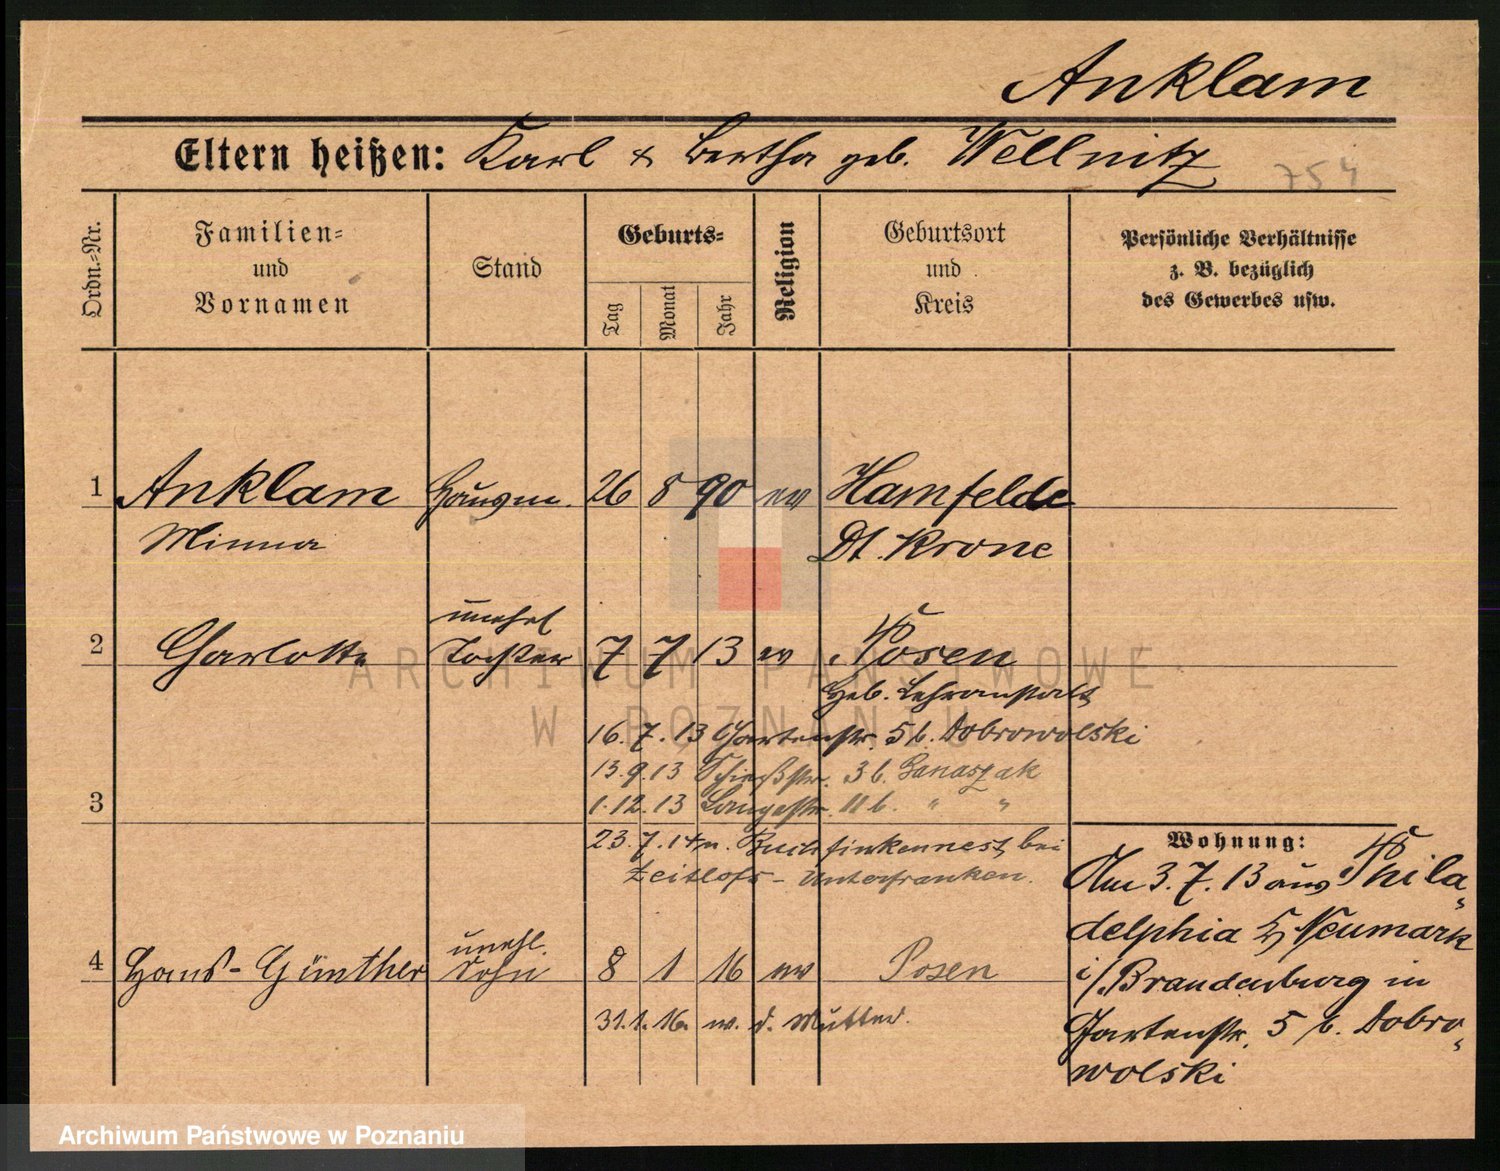 Anklam
Eltern heißen: Karl & Bertha geb. Wellnitz
754
Ordn.=Nr.
Familien=
und
Vornamen
Stand
Geburts=
Tag
Monat
Jahr
Religion
Geburtsort
und
Kreis
Persönliche Verhältnisse
z. B. bezüglich
des Gewerbes usw.
1 Anklam 26 8 90 ev Hamfelde
Minna Dt. Krone
unehel
2 Charlotte Tochter 7 7 13 ev Posen
Geb. Lehranstalt
16.7.13 Gartenstr. 5 b. Dobrowolski
13.9.13 Schießstr. 3 b. Banaszak
1.12.13 Langestr. 11 b. " "
3
23.7.14 n. Buchfinkennest, bei
Zeitlofs - Unterfranken.
Wohnung:
Am 3.7.13 aus Phila-
delphia Neumark
i/Brandenburg in
Gartenstr. 5 b. Dobro-
wolski
unehl.
4 Hans-Günther Sohn 8 1 16 ev Posen
31.1.16. w. d. Mutter.
ARCHIWUM PAŃSTWOWE
W POZNANIU
Archiwum Państwowe w Poznaniu